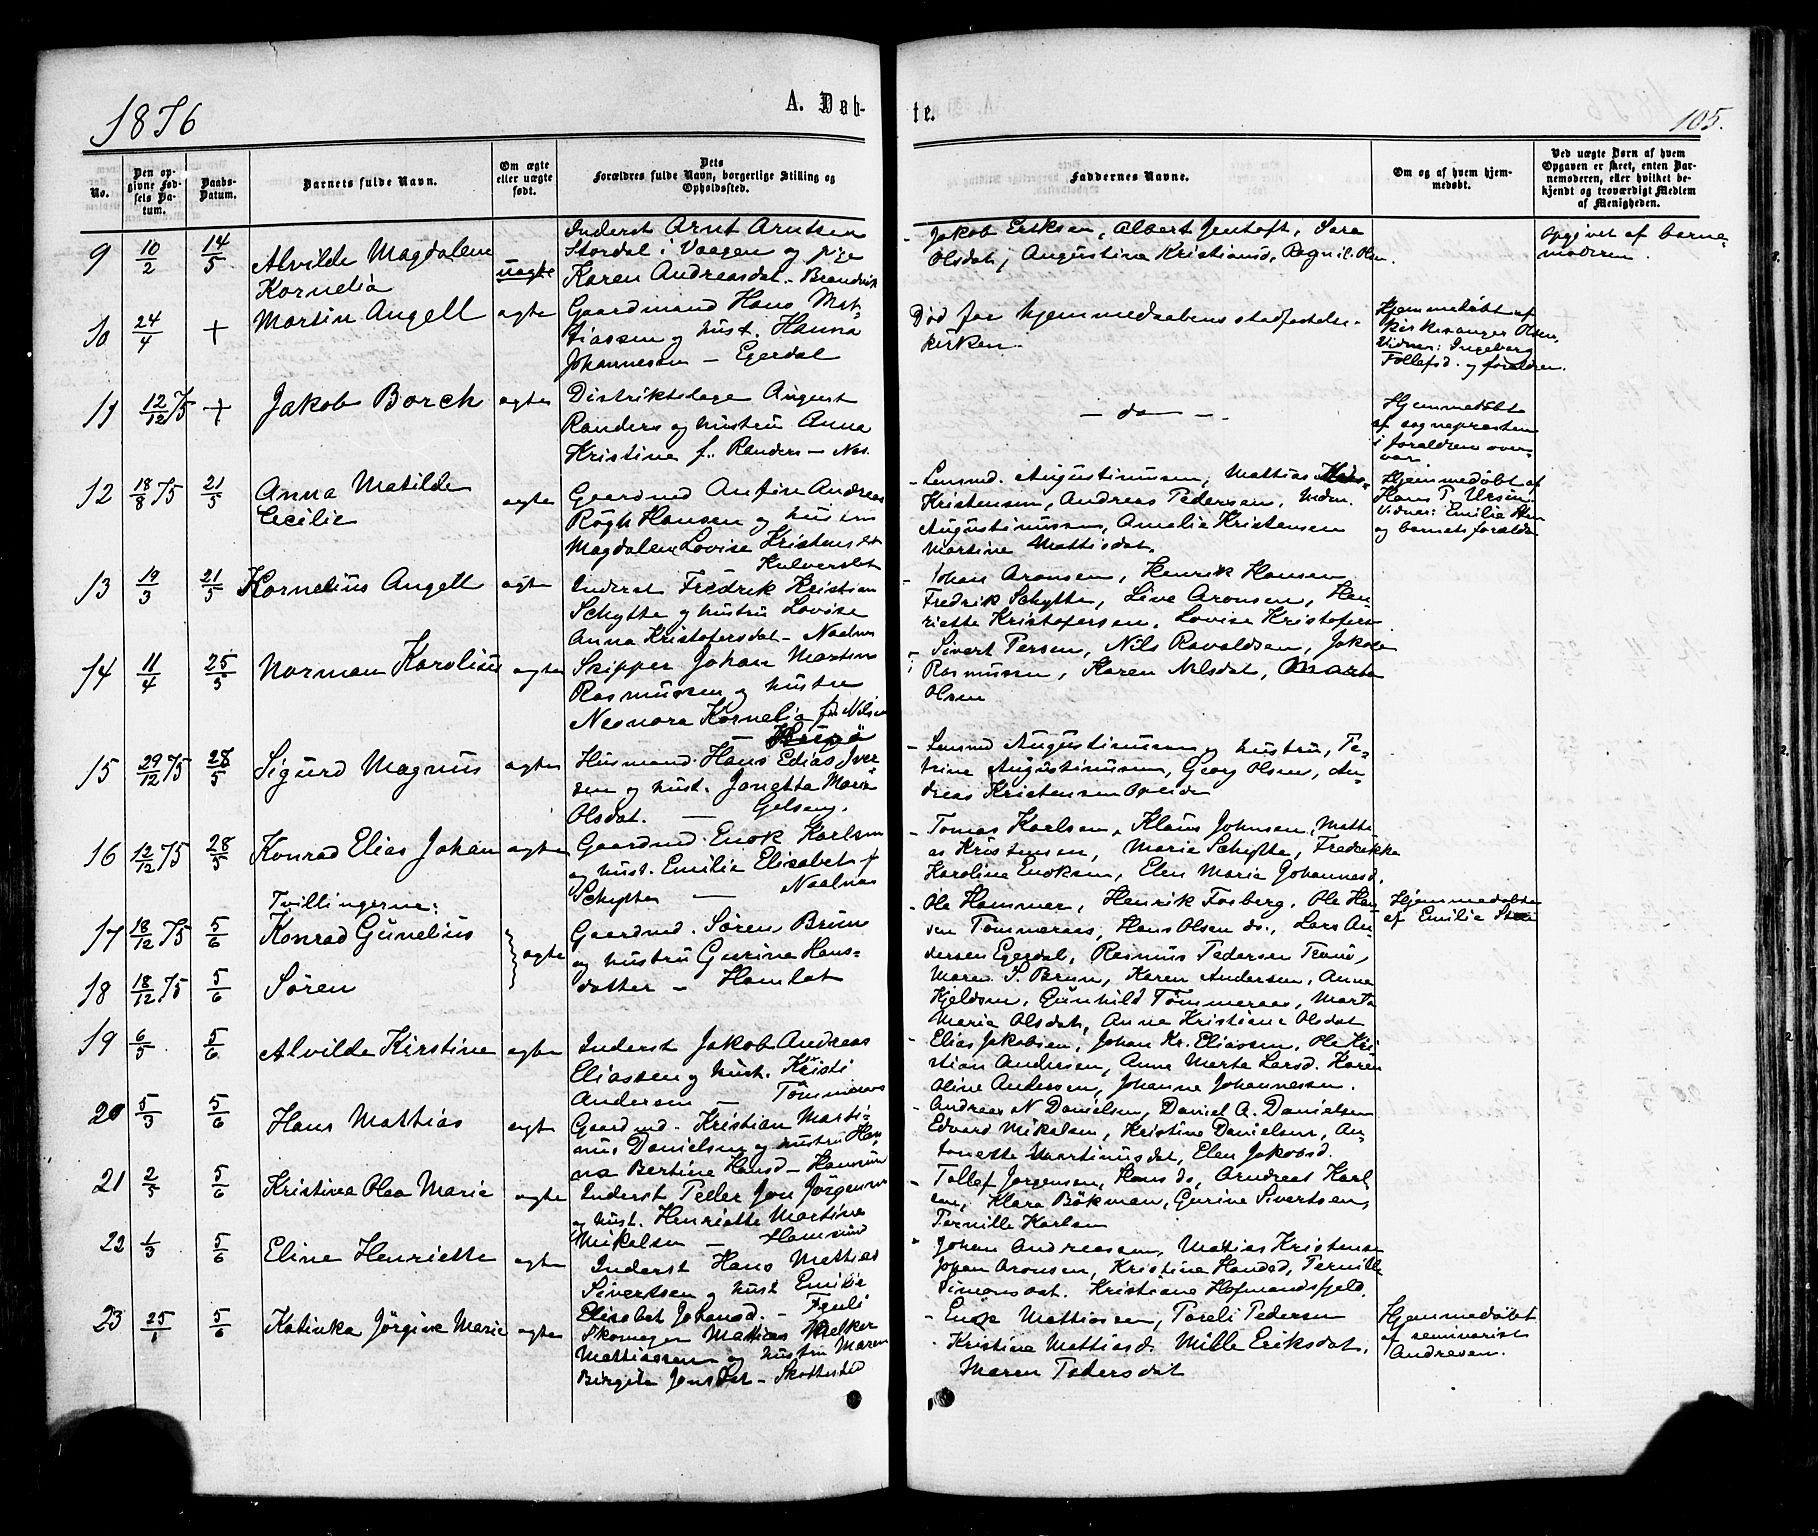 1876
A. Døb-
te.
105.
No.
Den opgivne Fødsels Datum.
Daabs-Datum.
Barnets fulde Navn.
Om ægte eller uægte født.
Dets Forældres fulde Navn, borgerlige Stilling og Opholdssted.
Faddernes Navne.
Om og af hvem hjemmedøbt.
Ved uægte Børn af hvem Opgaven er skeet, enten Barnemoderen, eller hvilket bekjendt og troværdigt Medlem af Menigheden.
9 10/2 14/5 Alvilde Magdalene
Kornelia
uægte
Inderst Arnt Arntsen
Stordal i Vaagen og pige
Karen Andreasdat. Brendvik
Jakob Eriksen, Albert Jentoft, Sara
Olsdat, Augustina Kristiansd, Ragnil. Olsen.
opgivet af barne-
moderen.
10 24/4 + Martin Angell ægte
Gaardmand Hans Mat-
tiassen og hust. Hanna
Johannessen – Egerdal
Død før hjemmedaabens stadfæstelse i
kirken.
Hjemmedøbt af
Olsen,
Vidner: Ingeborg
Tollefsd. og forældren.
11 12/12 75 + Jakob Borch ægte
Distriktslæge August
Randers og hustru Anna
Kristine f. Randers – Nes.
– do –
Hjemmedøbt
af sognepræsten
i forældren over-
vær
12 18/8 75 21/5 Anna Matilde
Cecilie
ægte
Gaardmd Anfin Andreas
Røgh Hansen og hustru
Magdalena Lovise Kristensdt
Kulverslet
Lensmd. Augustinussen, Mattias
Kristensen, Andreas Pedersen, Mdm.
Augustinussen, Amalie Kristensen
Martine Mattisdat.
Hjemmedøbt af
Hans P. Ursin.
Vidner: Emilie
og barnets forældr
13 19/3 21/5 Kornelius Angell ægte
Inderst Fredrik Kristian
Schytte og hustru Lovise
Anna Kristofersdat – Naalnes
Johan Aronsen, Henrik Hansen
Fredrik Schytte, Live Aronsen, Hen-
riette Kristofersen, Lovise Kristofers.
14 11/4 25/5 Norman Karolius ægte
Skipper Johan Martin
Rasmussen og hustru
Neonora Kornelia f. Nilsen
Sivert Persen, Nils Ravaldsen, Jakob
Rasmussen, Karen Nilsdat, Marta
Olsen
15 29/12 75 28/5 Sigurd Magnus ægte
Husmand Hans Edias Iver-
sen og hust. Janetta Maria
Olsdat. – Gelseng.
Lensmd Augustinussen og hustru, Pe-
trine Augustinussen, Georg Olsen, An-
dreas Kristensen Opeide
16 12/12 75 28/5 Konrad Elias Johan ægte
Gaardmd. Enok Karlsen
og hust. Emilie Elisabet f.
Schytte – Naalnes
Tomas Karlsen, Klaus Johnsen, Matti-
as Kristensen, Marie Schytte, Fredrikke
Karoline Enoksen, Elen Maria Johannesd.
Tvillingerne:
17 18/12 75 5/6 Konrad Gunelius
18 18/12 75 5/6 Søren
ægte
Gaardmd. Søren Bruun
og hustru Gurina Hans-
datter – Hamlot
Ole Hammer, Henrik Fosberg, Ole Han-
sen Tømmeraas, Hans Olsen ds., Lars An-
dersen Egerdal, Rasmus Pedersen Tranø,
Maren S. Bruun, Karen Andersen, Anna
Kjeldsen, Gunhild Tømmeraas, Marta
Maria Olsdat, Anne Kristiane Olsdat
Hjemmedøbte
af Emilie
19 6/5 5/6 Alvilde Kirstine ægte
Inderst Jakob Andreas
Eliassen og hust. Kristi
Andersen – Tømmeraas
Elias Jakobsen, Johan Kr. Eliassen, Ole Kri-
stian Andersen, Anne Marta Larsd. Karen
Oline Andersen, Johanne Johannessen.
20 5/3 5/6 Hans Mattias ægte
Gaardmd. Kristian Marti-
nus Danielsen og hustru Han-
na Bertine Hansd – Hamsund
Andreas N Danielsen, Daniel A. Danielsen
Edvard Mikelsen, Kristine Danielsen, An-
tonette Martinusdat, Elen Jakobsd.
21 2/5 5/6 Kristine Olea Marie ægte
Inderst Peder Jon Jørgensen
og hust. Henriette Martine
Mikelsen – Hamsund
Tollef Jørgensen, Hans ds, Andreas Karl-
sen, Klara Bökman, Gurine Sivertsen,
Pernille Karlsen
22 1/3 5/6 Eline Henriette ægte
Inderst Hans Mattias
Sivertsen og hust Emilie
Elisabet Johansd. –
Johan Andreassen, Mattias Kristensen
Johan Aronsen, Kristine Hansd, Pernille
Simonsdat. Kristiane Hofmandsfjeld.
23 25/1 5/6 Katinka Jørgine Marie ægte
Skomager Mattias
Mattiassen og hustru Maren
Birgite Jonsdat – Skottestad
Enok Mattiassen, Pareli Pedersen
Kristine Mattiasd. Mille Eriksdat.
Maren Pedersdat
Hjemmedøbt
af seminarist
Andresen.